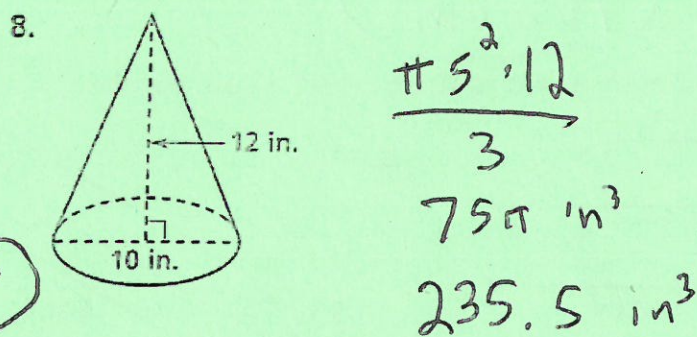 8.
12 in.
10 in.
π5²·12
3
75π in³
235.5 in³